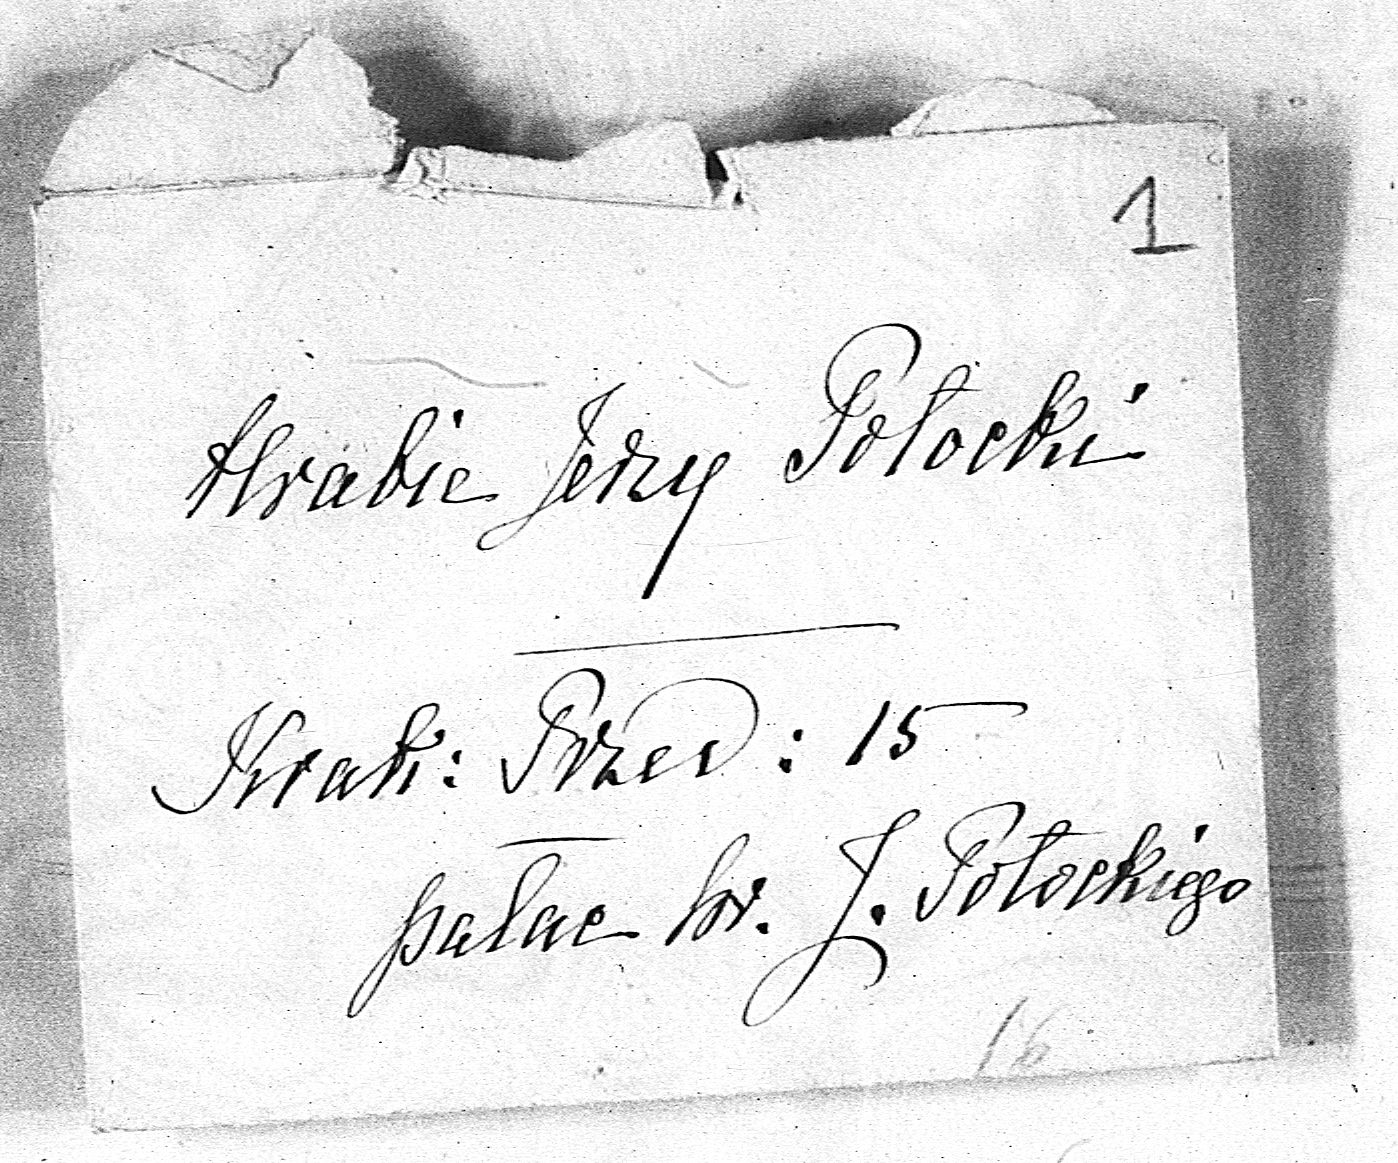 1
Hrabie Jerzy Potocki
Krak: Przed: 15
pałac hr. J. Potockiego
16